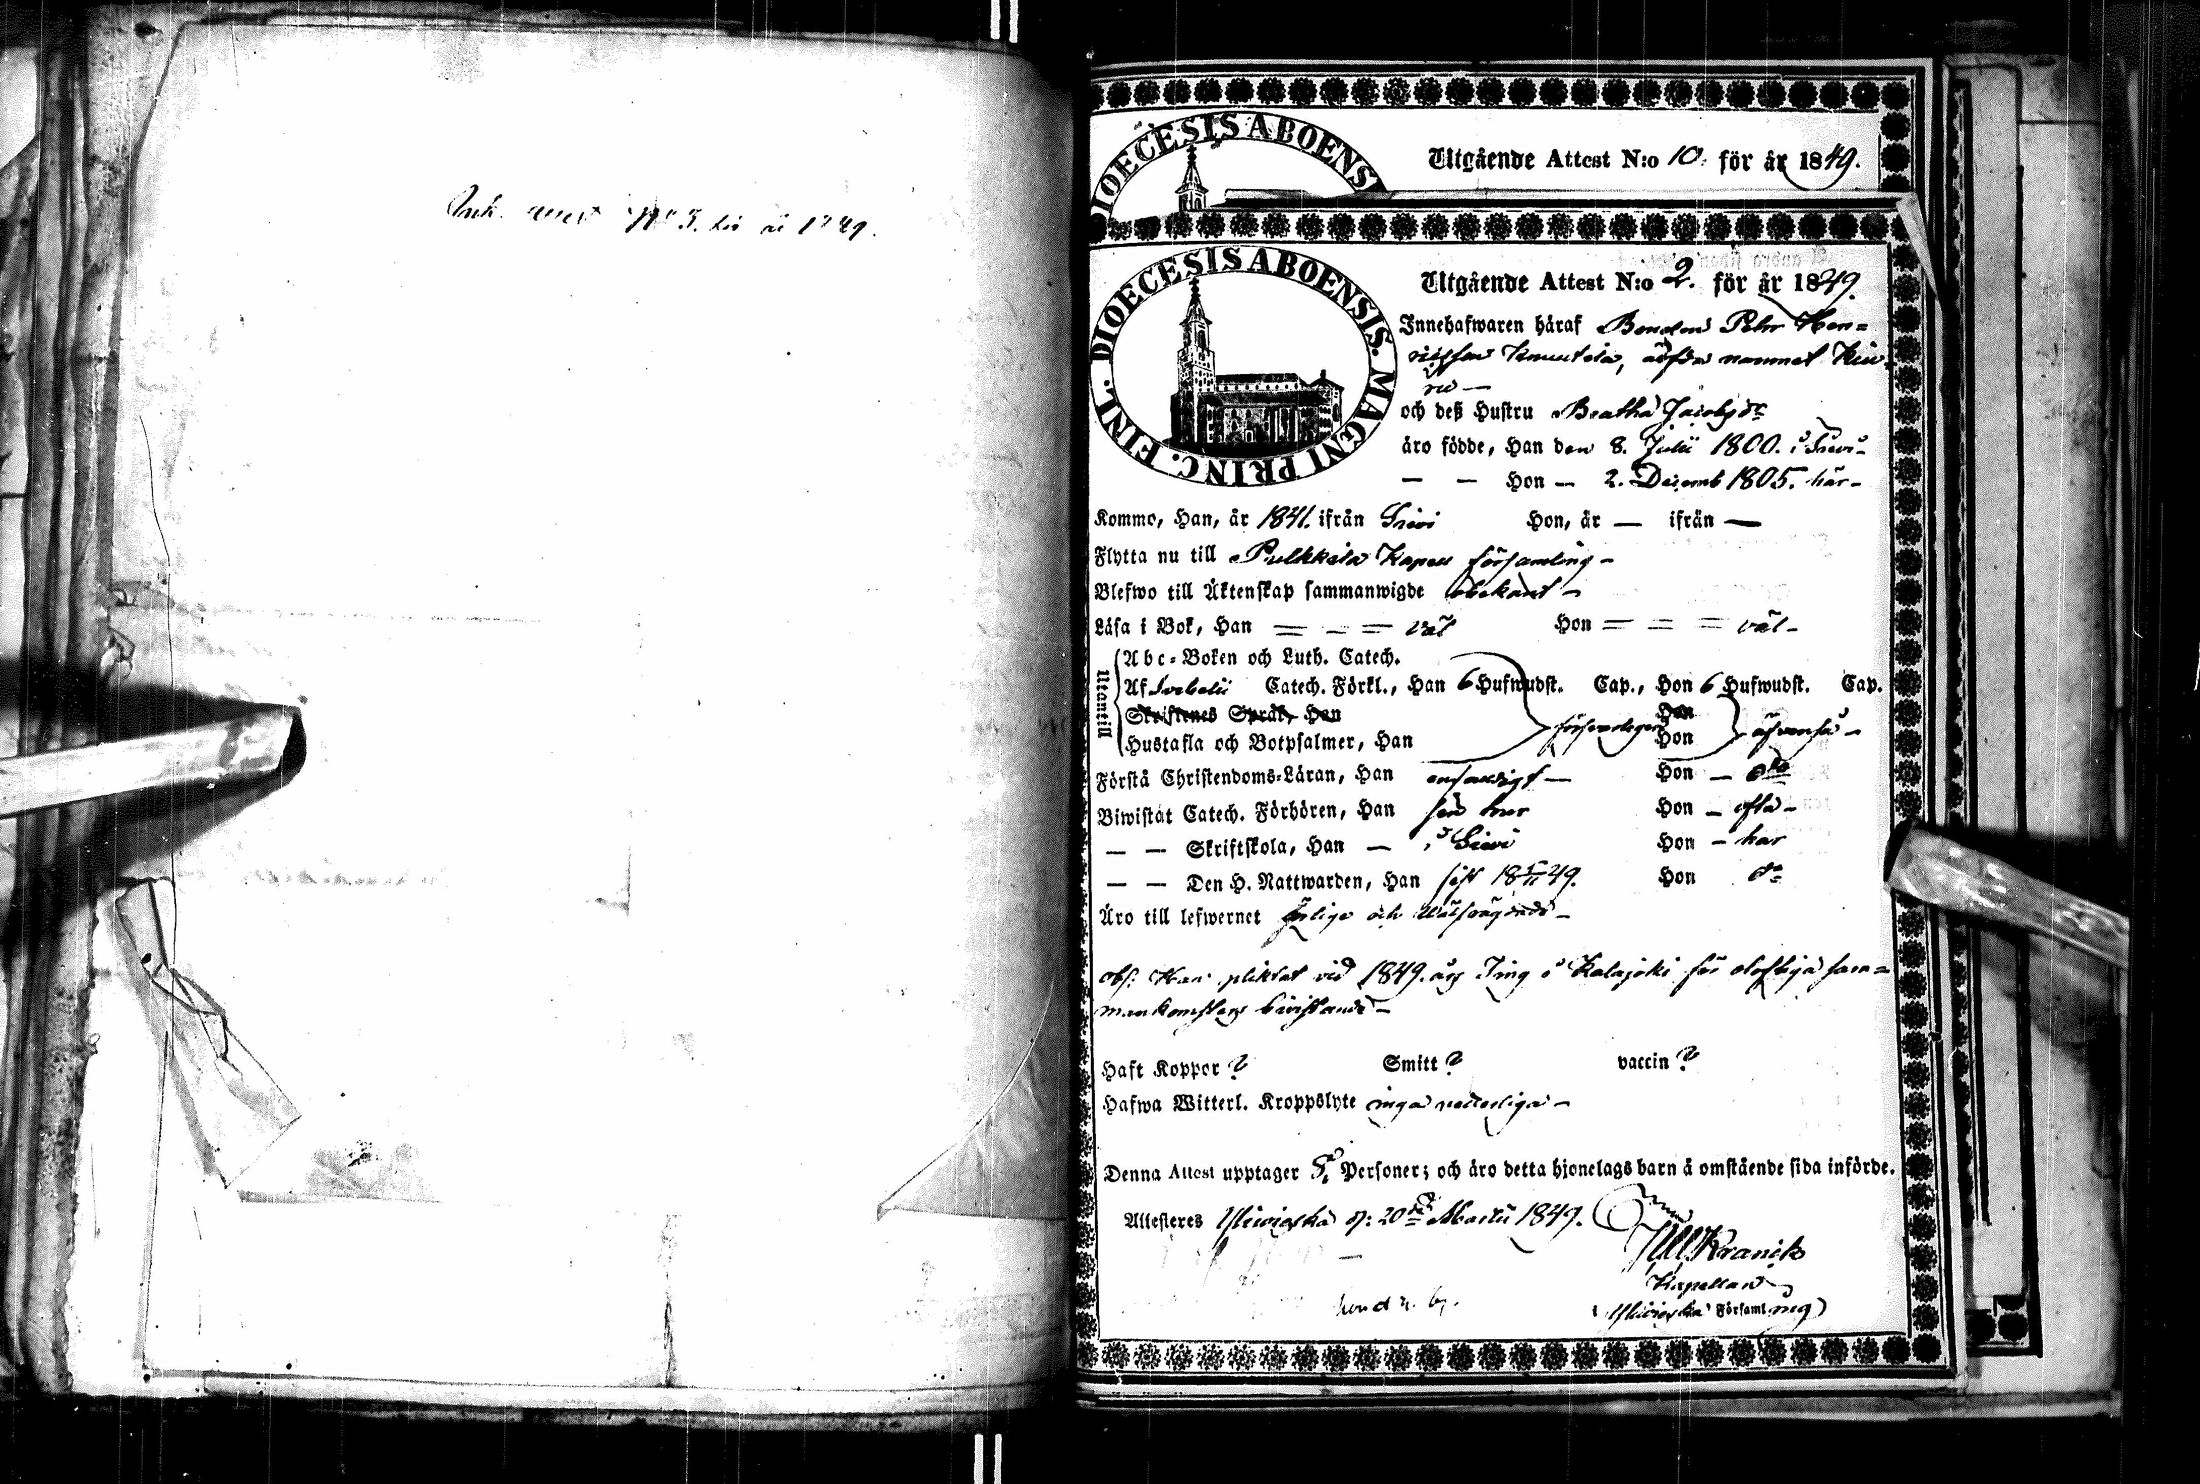 Ink. attest No 3. för år 1849.
DIOECESIS ABOENSI
Utgående Attest N:o 10. för år 1849.
DIOECESIS ABOENSIS. MAGNI PRINC. FINL.
Utgående Attest N:o 2. för år 1849.
Innehafwaren häraf Bonden Pehr Hen=
ricsson namnet
och deß Hustru Beatha Jacobsdr
äro födde, Han den 8. Julii 1800. i Siewi-
— — Hon — 2. Decemb 1805. här-
Kommo, Han, år 1841. ifrån Siewi Hon, år — ifrån —
Flytta nu till Pulkkila Kapell församling -
Blefwo till Äktenskap sammanwigde obekant -
Läsa i Bok, Han = - = väl Hon = = = väl-
Utantill
Abc-Boken och Luth. Catech.
Af Svebelii Catech. Förkl., Han 6 Hufwudst. Cap., Hon 6 Hufwudst. Cap.
Skriftenes Språk, Han Hon
Hustafla och Botpsalmer, Han försvarligen Hon äfvenså -
Förstå Christendoms-Läran, Han enfaldigt — Hon — do
Biwistat Catech. Förhören, Han Hon - ofta -
— — Skriftskola, Han — i Siewi Hon - här
— — Den H. Nattwarden, Han sist 18 49. Hon do
Äro till lefwernet ärlige och välfrägdade -
obs: Han pliktat vid 1849. års Ting i Kalajoki för olofliga sam=
mankomsters bivistande -
Haft Koppor ? Smitt ? vaccin ?
Hafwa Witterl. Kroppslyte inga vetterliga -
Denna Attest upptager 8. Personer; och äro detta hjonelags barn å omstående sida införde.
Attesteras Ylivieska d: 20de Martii 1849.
Kranck
Kapellan
(Ylivieska Församling)